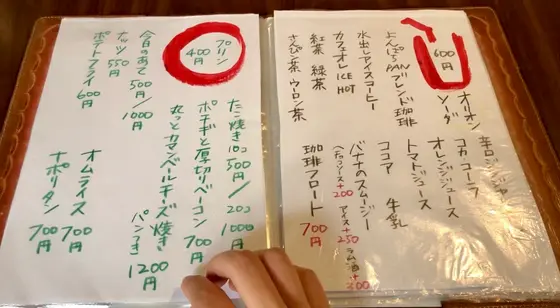 600円
よんぱちPANブレンド珈琲
水出しアイスコーヒー
カフェオレ ICE HOT
紅茶 緑茶
さんぴん茶 ウーロン茶
オリオンソーダ
辛口ジンジャー
コカ・コーラ
オレンジジュース
トマトジュース
ココア 牛乳
バナナのスムージー
アイス+250
ラム酒+300
珈琲フロート 700円
プリン 400円
今日のあて 500円/1000円
ナッツ 550円
ポテトフライ 600円
たこ焼き10コ 500円/20コ 1000円
ポテチギと厚切りベーコン 700円
丸っとカマンベールチーズ焼き パンつき 1200円
オムライス 700円
ナポリタン 700円